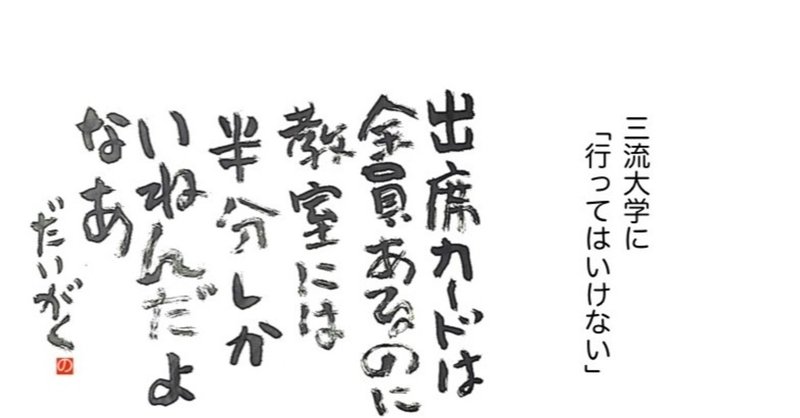 三流大学に
「行ってはいけない」
出席カードは
全員あるのに
教室には
半分しか
いねんだよ
なあ
だいがく
の